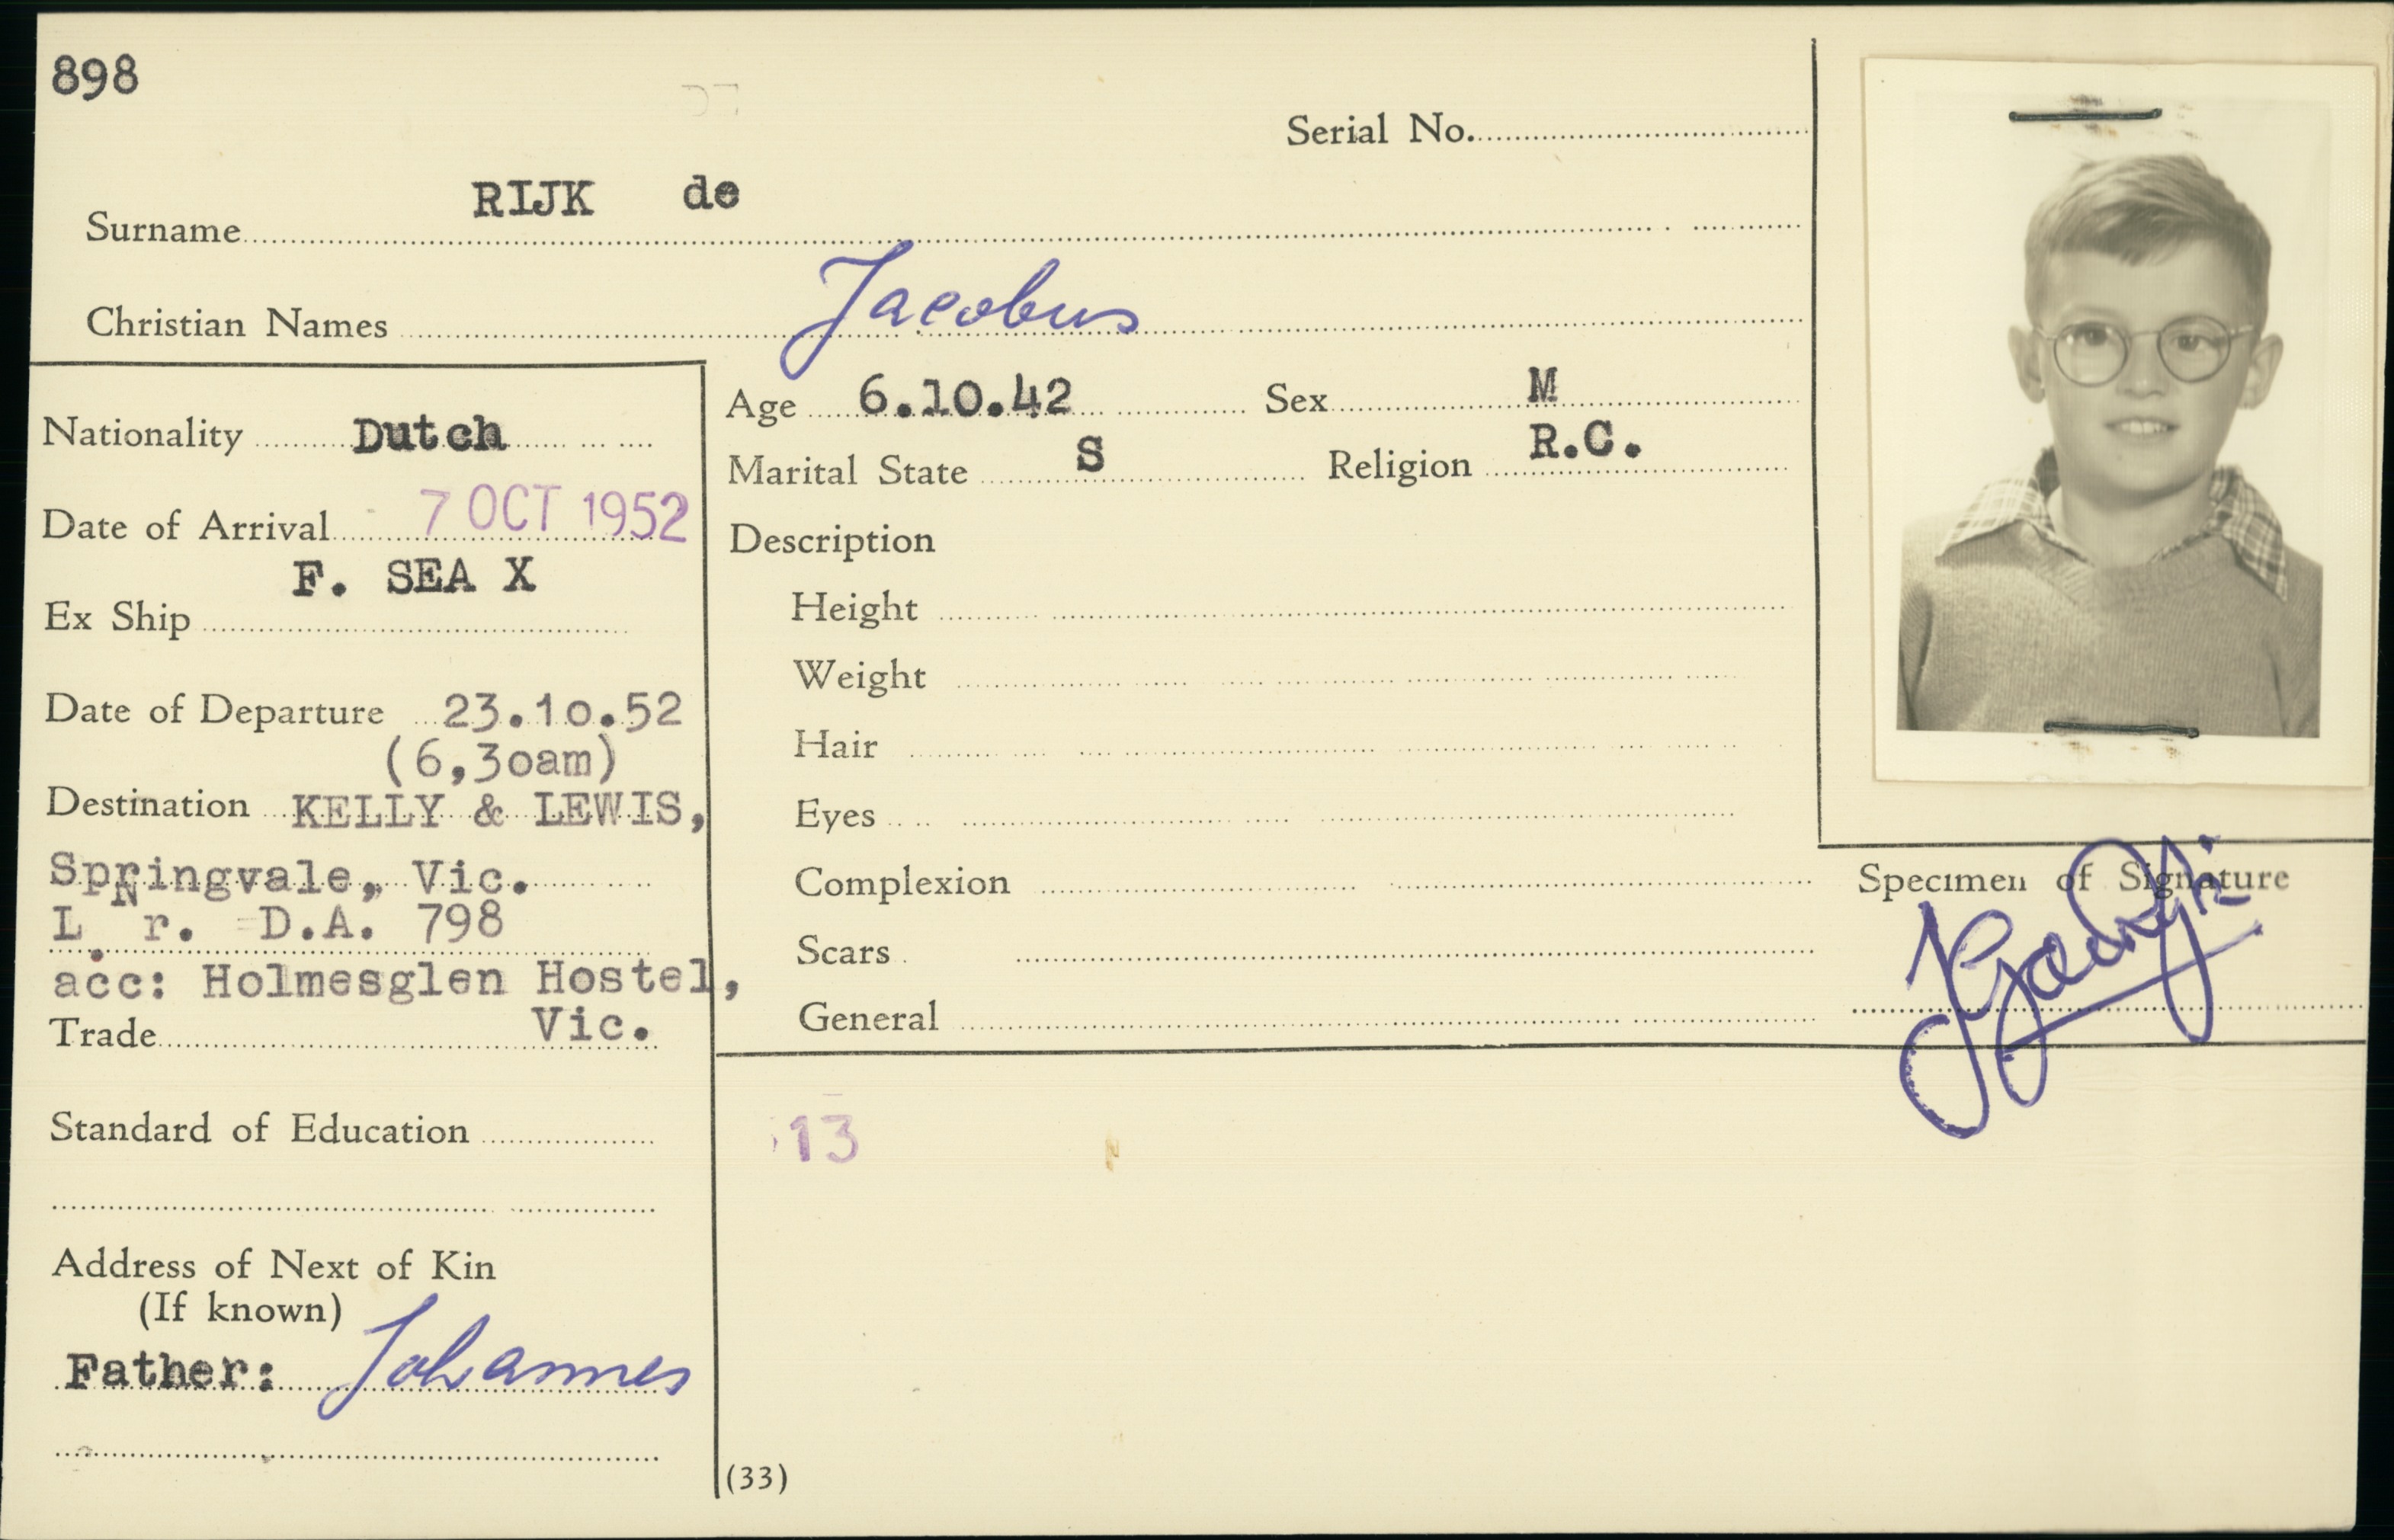 898
Serial No.
Surname RIJK de
Christian Names Jacobus
Nationality Dutch
Date of Arrival 7 OCT 1952
F. SEA X
Ex Ship
Date of Departure 23.10.52
(6,30am)
Destination KELLY & LEWIS,
Springvale, Vic.
L N r. D.A. 798
acc: Holmesglen Hostel,
Vic.
Trade
Standard of Education
Address of Next of Kin
(If known)
Father: Johannes
Age 6.10.42 Sex M
Marital State S Religion R.C.
Description
Height
Weight
Hair
Eyes
Complexion
Scars
General
13
(33)
Specimen of Signature